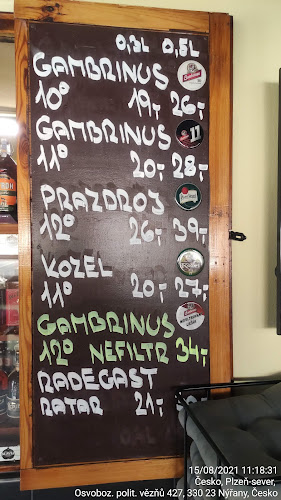 0,3L 0,5L
GAMBRINUS
10° 19,- 26,-
GAMBRINUS
11
11° 20,- 28,-
PRAZDROJ
12° 26,- 39,-
KOZEL
11° 20,- 27,-
GAMBRINUS
12° NEFILTR 34,-
RADEGAST
RATAR 21,-
15/08/2021 11:18:31
Česko, Plzeň-sever,
Osvoboz. polit. vězňů 427, 330 23 Nýřany, Česko